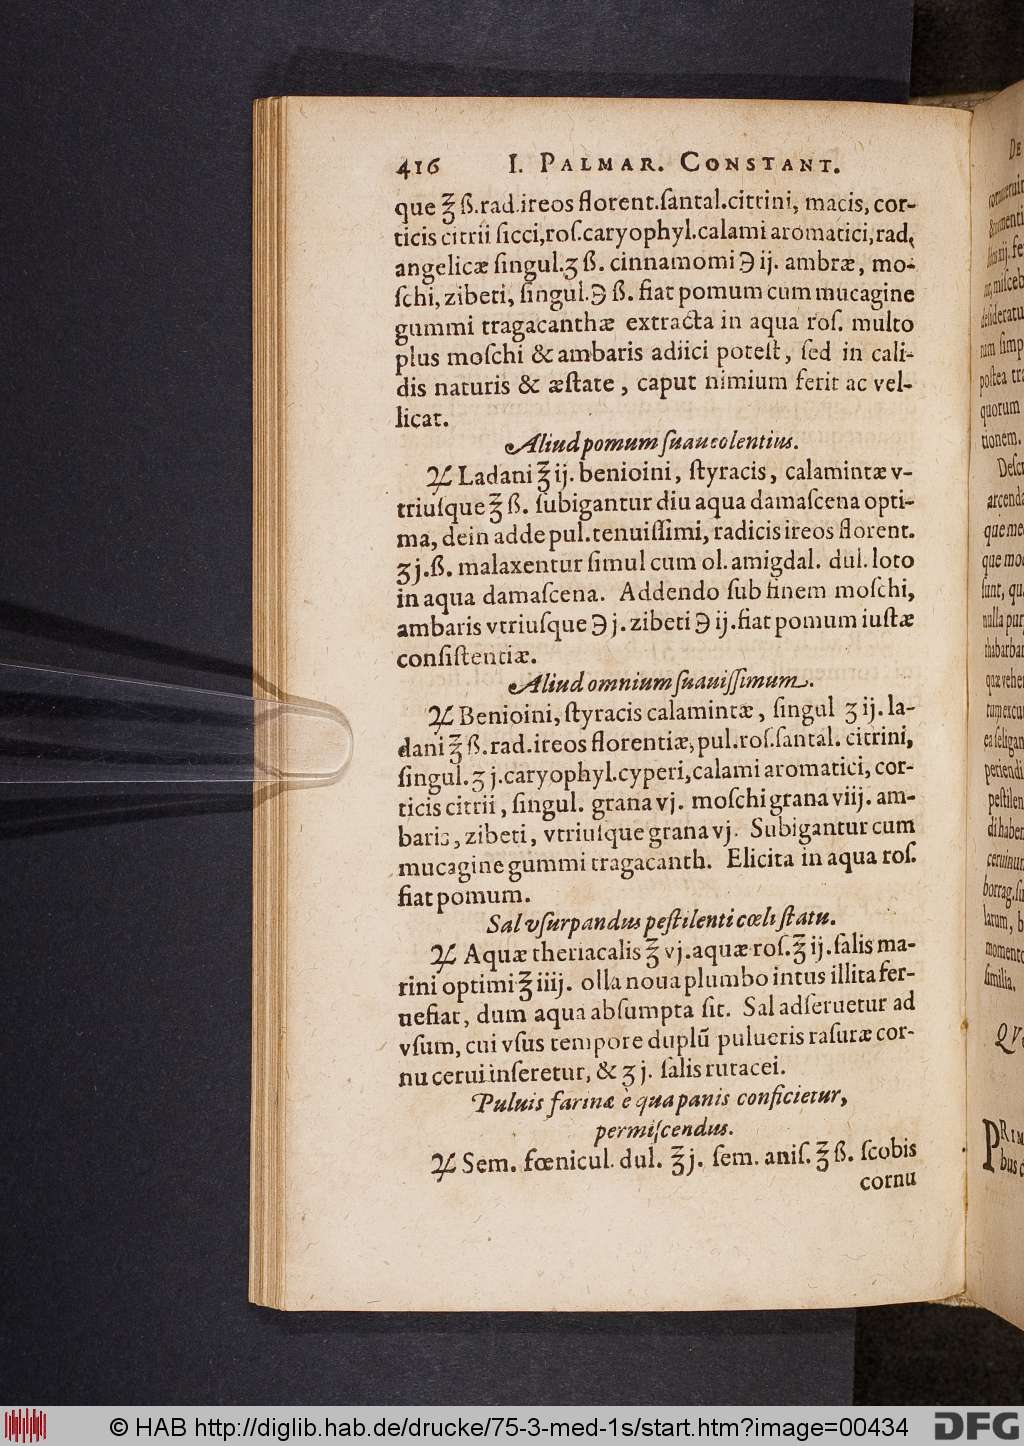 416 I. PALMAR. CONSTANT.
que ℥ ß. rad. ireos florent. ſantal. cittini, macis, cor-
ticis citrii ſicci, roſ. caryophyl. calami aromatici, rad.
angelicæ ſingul. ʒ ß. cinnamomi ℈ ij. ambræ, mo-
ſchi, zibeti, ſingul. ℈ ß. fiat pomum cum mucagine
gummi tragacanthæ extracta in aqua roſ. multo
plus moſchi & ambaris adiici poteſt, ſed in cali-
dis naturis & æſtate, caput nimium ferit ac vel-
licat.
Aliud pomum ſuaueolentius.
♃ Ladani ℥ ij. benioini, ſtyracis, calamintæ v-
triuſque ℥ ß. ſubigantur diu aqua damaſcena opti-
ma, dein adde pul. tenuiſſimi, radicis ireos florent.
ʒ j. ß. malaxentur ſimul cum ol. amigdal. dul. loto
in aqua damaſcena. Addendo ſub finem moſchi,
ambaris vtriuſque ℈ j. zibeti ℈ ij. fiat pomum iuſtæ
conſiſtentiæ.
Aliud omnium ſuauiſſimum.
♃ Benioini, ſtyracis calamintæ, ſingul ʒ ij. la-
dani ℥ ß. rad. ireos florentiæ, pul. roſ. ſantal. citrini,
ſingul. ʒ j. caryophyl. cyperi, calami aromatici, cor-
ticis citrii, ſingul. grana vj. moſchi grana viij. am-
baris, zibeti, vtriuſque grana vj. Subigantur cum
mucagine gummi tragacanth. Elicita in aqua roſ.
fiat pomum.
Sal vſurpandus peſtilenti cœli ſtatu.
♃ Aquæ theriacalis ℥ vj. aquæ roſ. ℥ ij. ſalis ma-
rini optimi ℥ iiij. olla noua plumbo intus illita fer-
uefiat, dum aqua abſumpta ſit. Sal adſeruetur ad
vſum, cui vſus tempore duplũ pulueris raſuræ cor-
nu cerui inſeretur, & ʒ j. ſalis rutacei.
Puluis farinæ è qua panis conficietur,
permiſcendus.
♃ Sem. fœnicul. dul. ℥ j. ſem. aniſ. ℥ ß. ſcobis
cornu
© HAB http://diglib.hab.de/drucke/75-3-med-1s/start.htm?image=00434
DFG